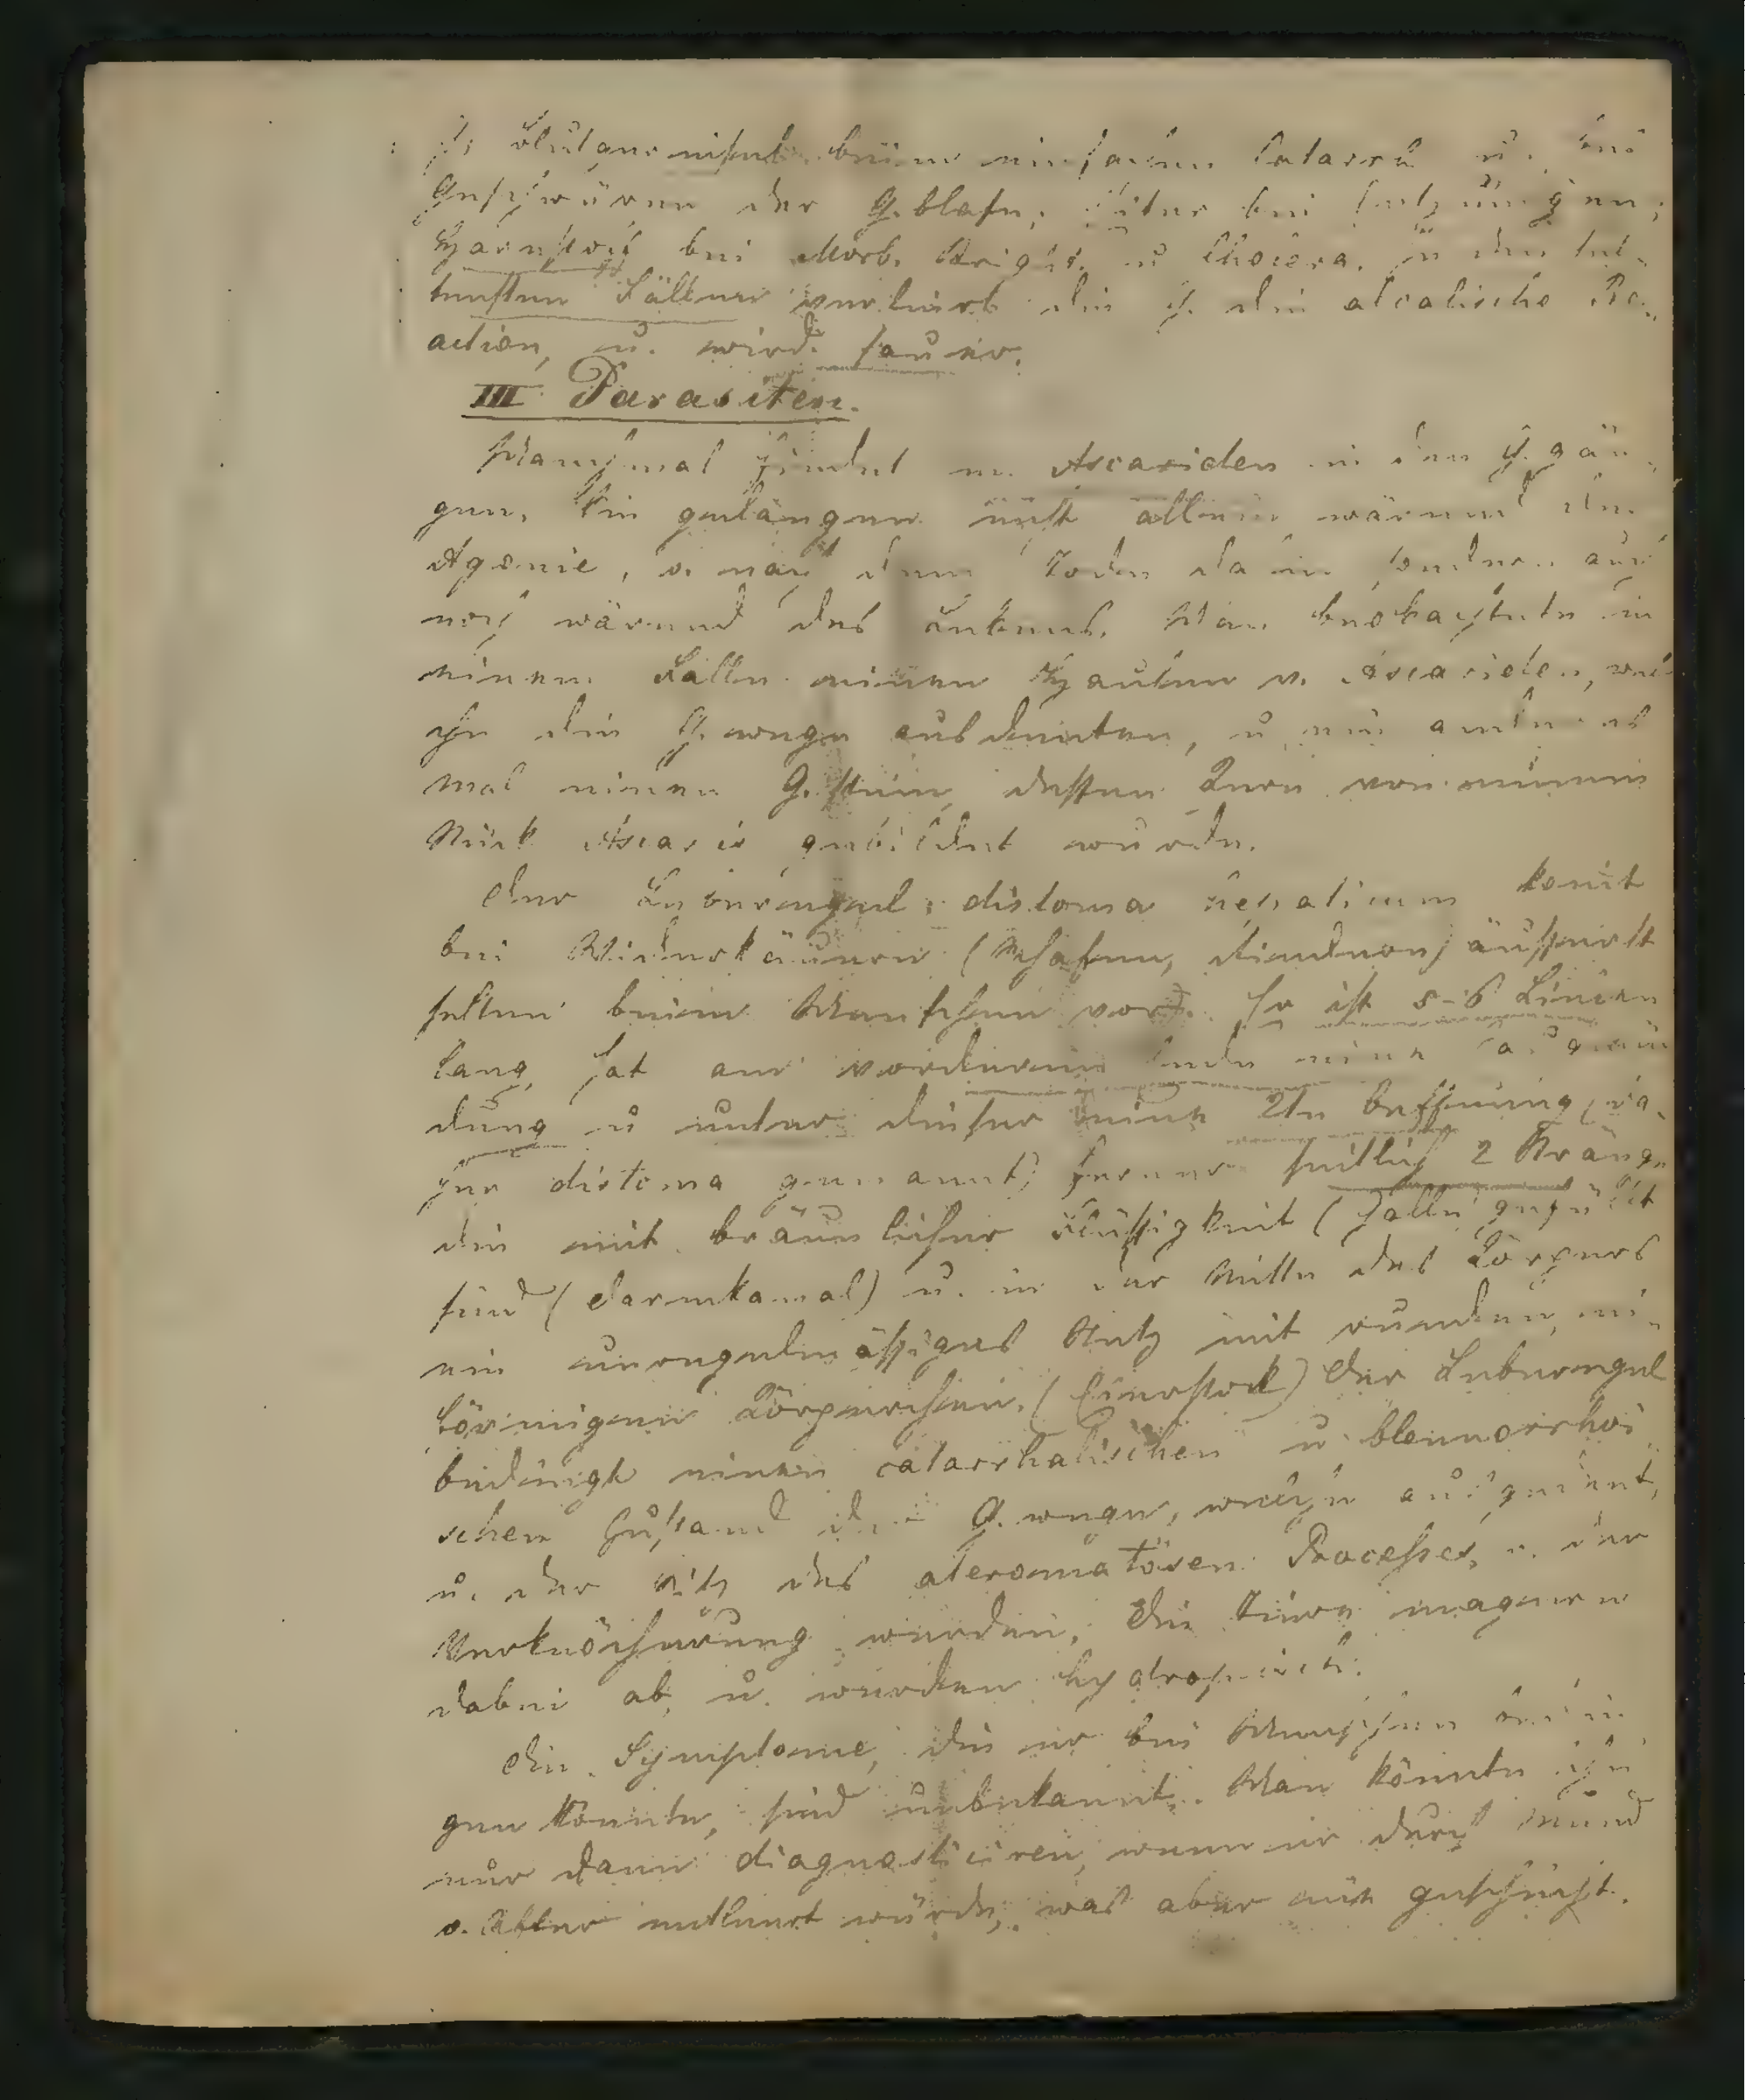 Blutgerinsel beim einfachen Catarrh u. bei
Geschwüren der G.blase, Eiter bei Entzündungen;
Harnstoff bei Morb. Brigth. u Cholera. In den sel-
tensten Fällen verliert die G. die alcalische Re-
action, u. wird sauer.
III Parasiten.
Manchmal findet m. Ascariden in den G.gän-
gen. Sie gelangen nicht allein wärend der
Agonie, o. nach dem Tode dahin sondern auch
noch wärend des Lebens. Man beobachtete in
einem Falle einen Haufen v. Ascariden, wel-
che die G.wege ausdehnten, u ein anderes
mal einen G.stein, dessen Kern von einem
Stük Ascaris gebildet wurde.
Der Leberegel, distoma hepaticum komt
bei Widerkäuern (Schafen, Rindern) äusserst
selten beim Menschen vor. Er ist 5-6 Linien
lang, hat am vorderen Ende eine Saugmün
dung u unter dieser eine 2te Öffnung (da-
her distoma genannt) ferner seitlich 2 Stränge
die mit bräunlicher Flüssigkeit (Galle) gefüllt
sind (Darmkanal) u. in der Mitte des Körpers
ein unregelmässiges Netz mit runden, ei-
förmigen Körperchen. (Eierstock) Der Leberegel
bedingt einen catarrhalischen u. blennorrhoi
schen Zustand der G.wege, welche ausgedehnt,
u. der Sitz des ateromatösen Processes, u. der
Verknöcherung werden. Die Tiere magern
dabei ab, u. werden hydropisch.
Die Symptome, die er bei Menschen erzeu
gen könnte, sind unbekannt. Man könnte ihn
nur dann diagnosticiren, wenn er durch Mund
o. After entleert würde, was aber nie geschieht.